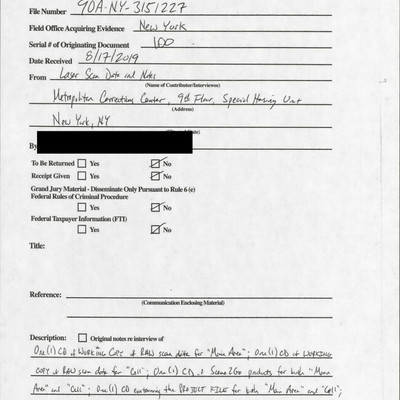 File Number 90A-NY-3151227
Field Office Acquiring Evidence New York
Serial # of Originating Document 100
Date Received 8/17/2019
From Laser Scan Data and Notes
(Name of Contributor/Interviewee)
Metropolitan Corrections Center, 9th Floor, Special Housing Unit
(Address)
New York, NY
By
To Be Returned Yes No
Receipt Given Yes No
Grand Jury Material - Disseminate Only Pursuant to Rule 6 (e)
Federal Rules of Criminal Procedure
Yes No
Federal Taxpayer Information (FTI)
Yes No
Title:
Reference:
(Communication Enclosing Material)
Description: Original notes re interview of
One (1) CD of WORKING COPY of RAW scan data for "Main Area"; One (1) CD of WORKING
COPY of RAW scan data for "Cell"; One (1) CD of Scene2Go products for both "Main
Area" and "Cell"; One (1) CD containing the PROJECT FILE for both "Main Area" and "Cell";